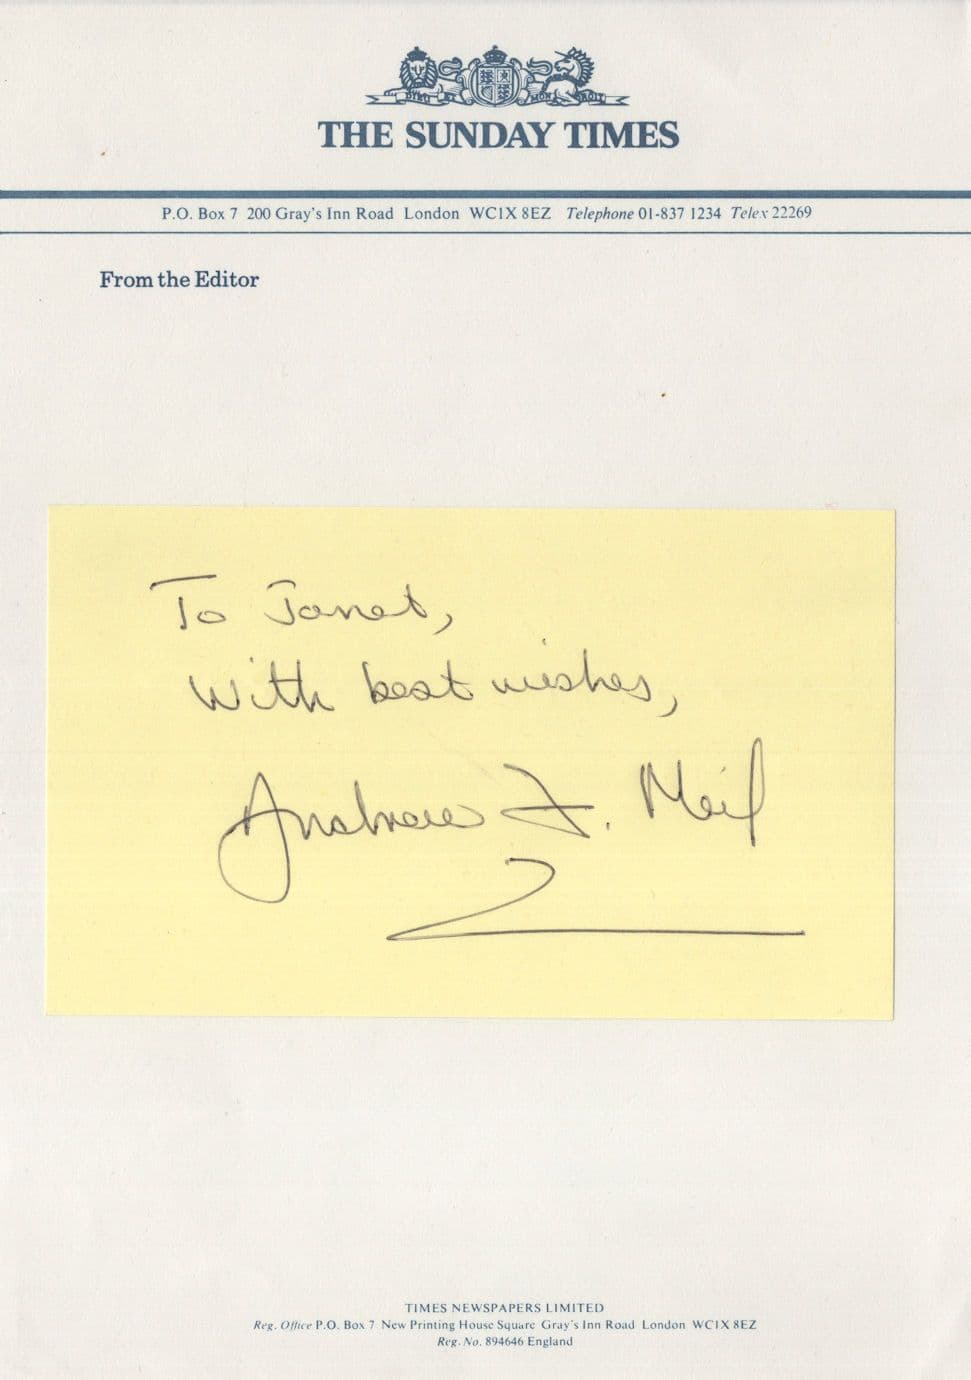 THE SUNDAY TIMES
P.O. Box 7 200 Gray's Inn Road London WC1X 8EZ Telephone 01-837 1234 Telex 22269
From the Editor
To Janet,
With best wishes,
Andrew F. Neil
TIMES NEWSPAPERS LIMITED
Reg. Office P.O. Box 7 New Printing House Square Gray's Inn Road London WC1X 8EZ
Reg. No. 894646 England